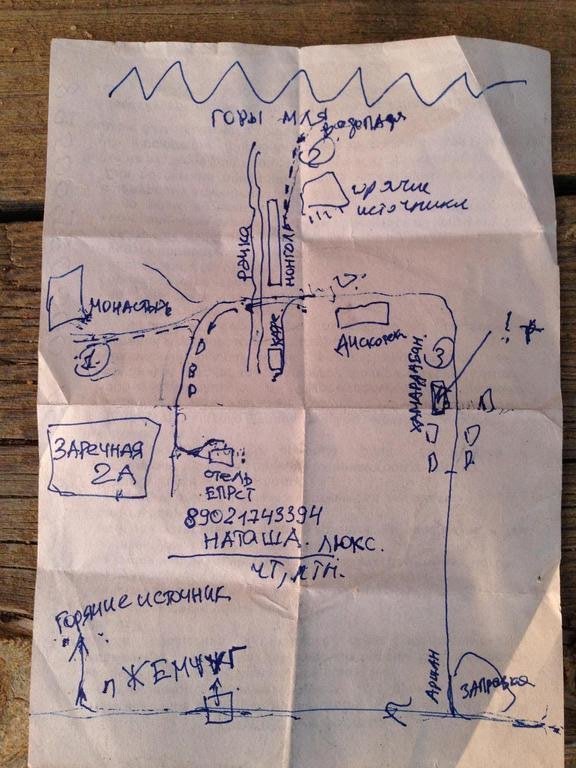 ГОРЫ МЛЯ
ВОДОПАДЫ
2
ГОРЯЧИЕ
ИСТОЧНИКИ
РЕЧКА
МОНГОЛЫ
МОНАСТЫРЬ
1.
КАФЕ
ДИСКОТЕКА
ХАМАРДАБАН.
3
!
ЗАРЕЧНАЯ
2А
ОТЕЛЬ
ЕПРСТ
89021743394
НАТАША. ЛЮКС.
ЧТ, ПТН.
ГОРЯЧИЕ ИСТОЧНИК
П ЖЕМЧУГ
АРШАН
ЗАПРАВКА